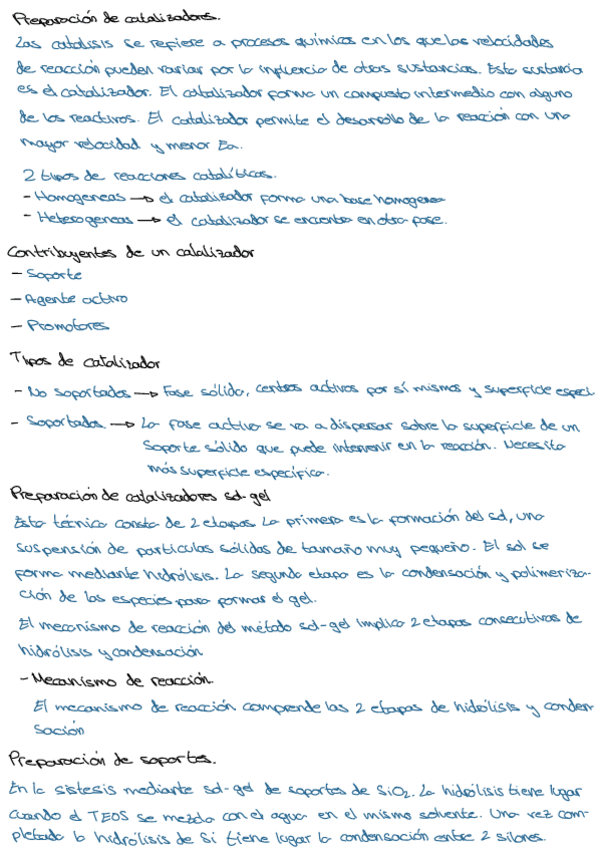 Preparación de catalizadores.
Las catalisis se refiere a procesos químicos en los que las velocidades
de reacción pueden variar por la influencia de otras sustancias. Esta sustancia
es el catalizador. El catalizador forma un compuesto intermedio con alguno
de los reactivos. El catalizador permite el desarrollo de la reacción con una
mayor velocidad y menor Ea.
2 tipos de reacciones catalíticas.
- Homogeneas → el catalizador forma una base homogenea
- Heterogeneas → el catalizador se encuentra en otra fase.
Contribuyentes de un catalizador
- Soporte
- Agente activo
- Promotores
Tipos de catalizador
- No soportados → Fase sólida, centros activos por sí mismos y superficie especi
- Soportados. → La fase activa se va a dispersar sobre la superficie de un
Soporte sólido que puede intervenir en la reacción. Necesita
más superficie específica.
Preparación de catalizadores sol-gel
Esta técnica consta de 2 etapas. La primera es la formación del sol, una
suspensión de partículas sólidas de tamaño muy pequeño. El sol se
forma mediante hidrólisis. La segunda etapa es la condensación y polimeriza-
ción de las especies para formar el gel.
El mecanismo de reacción del método sol-gel implica 2 etapas consecutivas de
hidrólisis y condensación
- Mecanismo de reacción.
El mecanismo de reacción comprende las 2 etapas de hidrólisis y conden-
sación
Preparación de soportes.
En la sistesis mediante sol-gel de soportes de SiO₂. La hidrólisis tiene lugar
cuando el TEOS se mezcla con el agua en el mismo solvente. Una vez com-
pletada la hidrólisis de Si tiene lugar la condensación entre 2 silones.